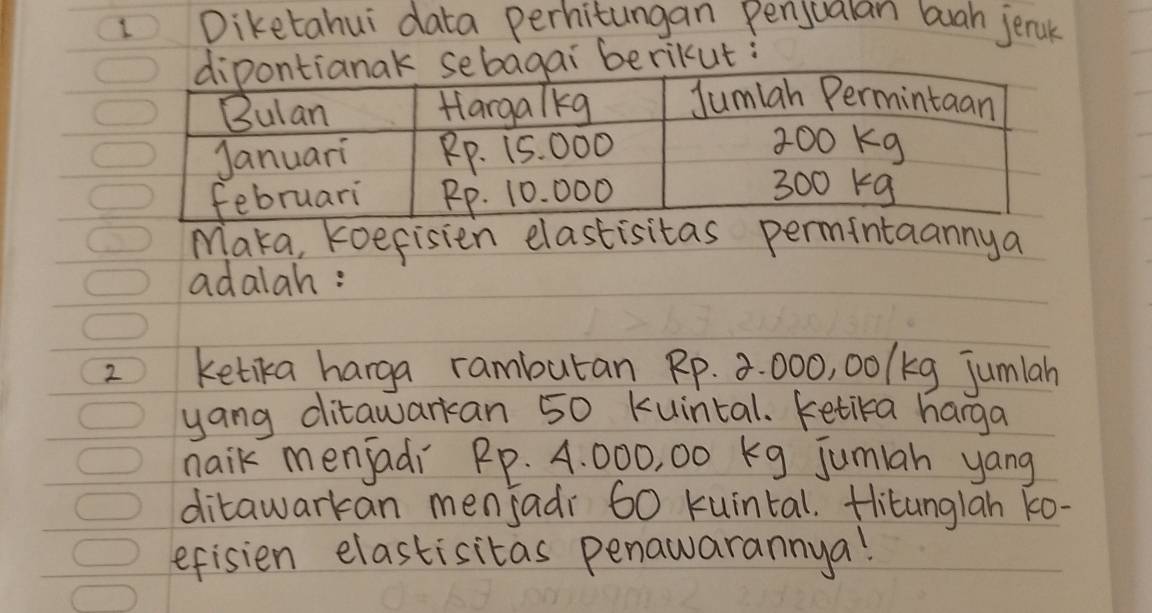 1 Diketahui data perhitungan penjualan buah jeruk
dipontianak sebagai berikut :
Bulan Harga/kg Jumlah Permintaan
Januari Rp. 15.000 200 kg
Februari Rp. 10.000 300 kg
Maka, koefisien elastisitas permintaannya
adalah :
2 Ketika harga rambutan Rp. 2.000,00/kg jumlah
yang ditawarkan 50 kuintal. Ketika harga
naik menjadi Rp. 4.000,00 kg jumlah yang
ditawarkan menjadi 60 kuintal. Hitunglah ko-
efisien elastisitas penawarannya!